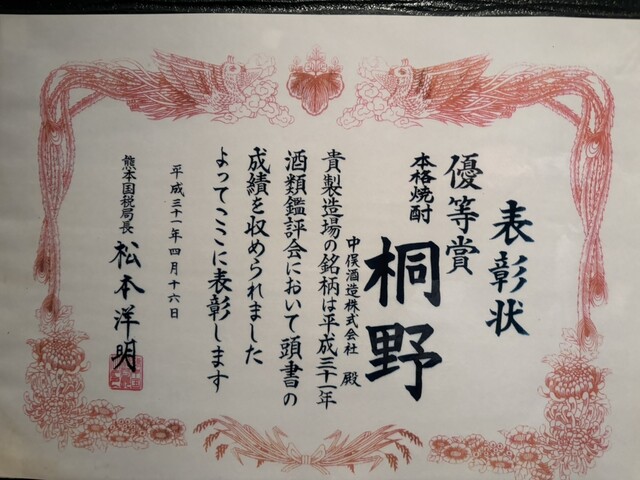 表彰状
優等賞
本格焼酎
桐野
中俣酒造株式会社 殿
貴製造場の銘柄は平成三十一年
酒類鑑評会において頭書の
成績を収められました
よってここに表彰します
平成三十一年四月十六日
熊本国税局長 松本洋明